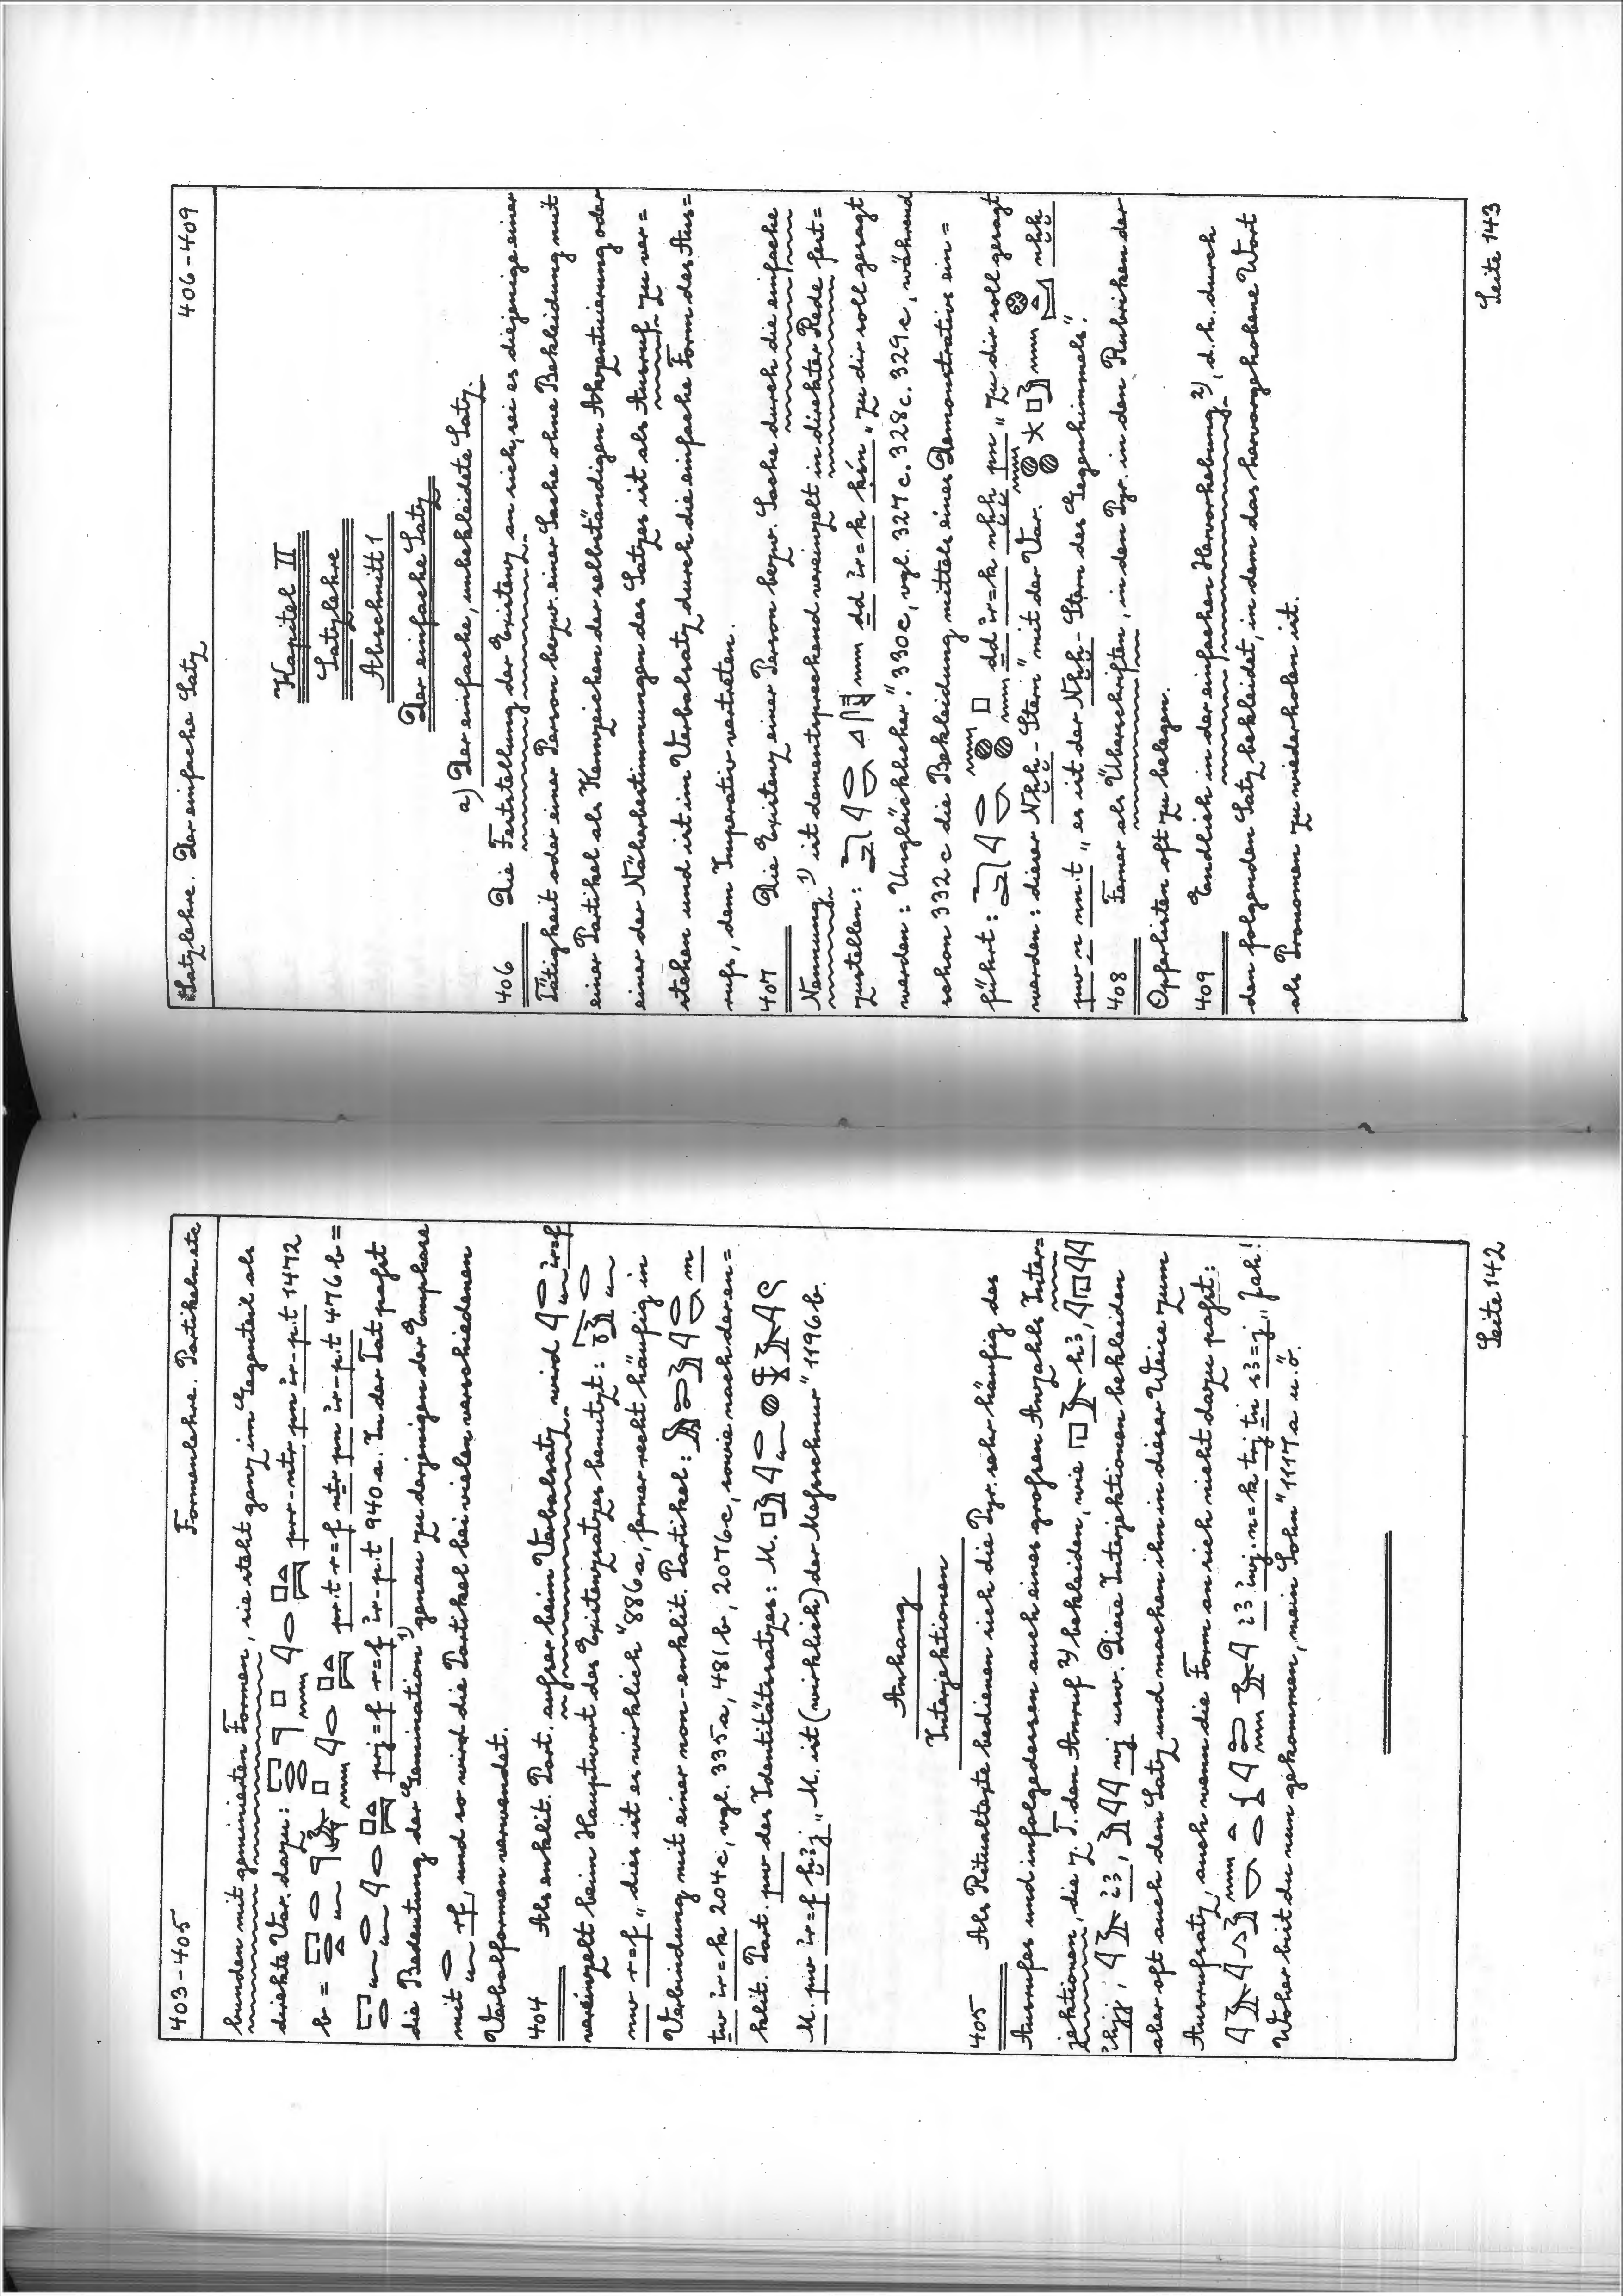 403-405 Formenlehre. Partikeln etc
bunden mit geminierten Formen, sie steht ganz im Gegenteil als
direkte Var. dazu: prr-nṯr pn ỉr-p.t 1472
b = pr.t r=f nṯr pn ỉr-p.t 476 b =
prj=f r=f ỉr-p.t 940 a. In der Tat paßt
die Bedeutung der Gemination¹⁾ genau zu derjenigen der Emphase
mit rf, und so wird die Partikel bei vielen verschiedenen
Verbalformen verwendet.
404 Als enklit. Part. außer beim Verbalsatz wird ỉr=f
vereinzelt beim Hauptwort des Existenzsatzes benutzt:
nw r=f „dies ist es wirklich" 886 a, ferner recht häufig in
Verbindung mit einer non-enklit. Partikel: m
ṯw ỉr=k 204 c, vgl. 335 a, 481 b, 2076 c, sowie nach der en=
klit. Part. pw des Identitätssatzes: M.
M. pw ỉr=f ḫꜣj „M. ist (wirklich) der Meßschnur" 1196 b.
Anhang
Interjektionen
405 Als Ritualtexte bedienen sich die Pyr. sehr häufig des
Ausrufes und infolgedessen auch eines großen Anzahls Inter=
jektionen, die z. T. den Anruf²⁾ bekleiden, wie hꜣ,
ỉhjj, ỉꜣ, wj usw. Diese Interjektionen bekleiden
aber oft auch den Satz und machen ihn in dieser Weise zum
Ausrufsatz, auch wenn die Form an sich nicht dazu paßt:
ỉꜣ ỉwj.n=k ṯnj ṯn sꜣ=j „Jah!
Woher bist du nun gekommen, mein Sohn" 1117 a u.ö.
Seite 142
Satzlehre. Der einfache Satz 406-409
Kapitel II
Satzlehre
Abschnitt 1
Der einfache Satz
a) Der einfache, unbekleidete Satz.
406 Die Feststellung der Existenz an sich, sei es diejenige einer
Tätigkeit oder einer Person bezw. einer Sache ohne Bekleidung mit
einer Partikel als Kennzeichen der selbständigen Akzentuierung oder
einer der Näherbestimmungen des Satzes ist als Ausruf zu ver=
stehen und ist im Verbalsatz durch die einfache Form des Aus=
rufs, dem Imperativ vertreten.
407 Die Existenz einer Person bezw. Sache durch die einfache
Nennung¹⁾ ist dementsprechend vereinzelt in direkter Rede fest=
zustellen: ḏd ỉr=k ḳśn „Zu dir soll gesagt
werden: Unglücklicher." 330 c, vgl. 327 c. 328 c. 329 c, während
schon 332 c die Bekleidung mittels eines Demonstrativs ein=
führt: ḏd ỉr=k nḫḫ pn „Zu dir soll gesagt
werden: dieser Nḫḫ-Stern" mit der Var. nḫḫ
pw n nn.t „es ist der Nḫḫ-Stern des Gegenhimmels".
408 Ferner als Überschriften, in den Pyr. in den Rubriken der
Opferlisten oft zu belegen.
409 Endlich in der einfachen Hervorhebung²⁾, d. h. durch
den folgenden Satz bekleidet, in dem das hervorgehobene Wort
als Pronomen zu wiederholen ist.
Seite 143